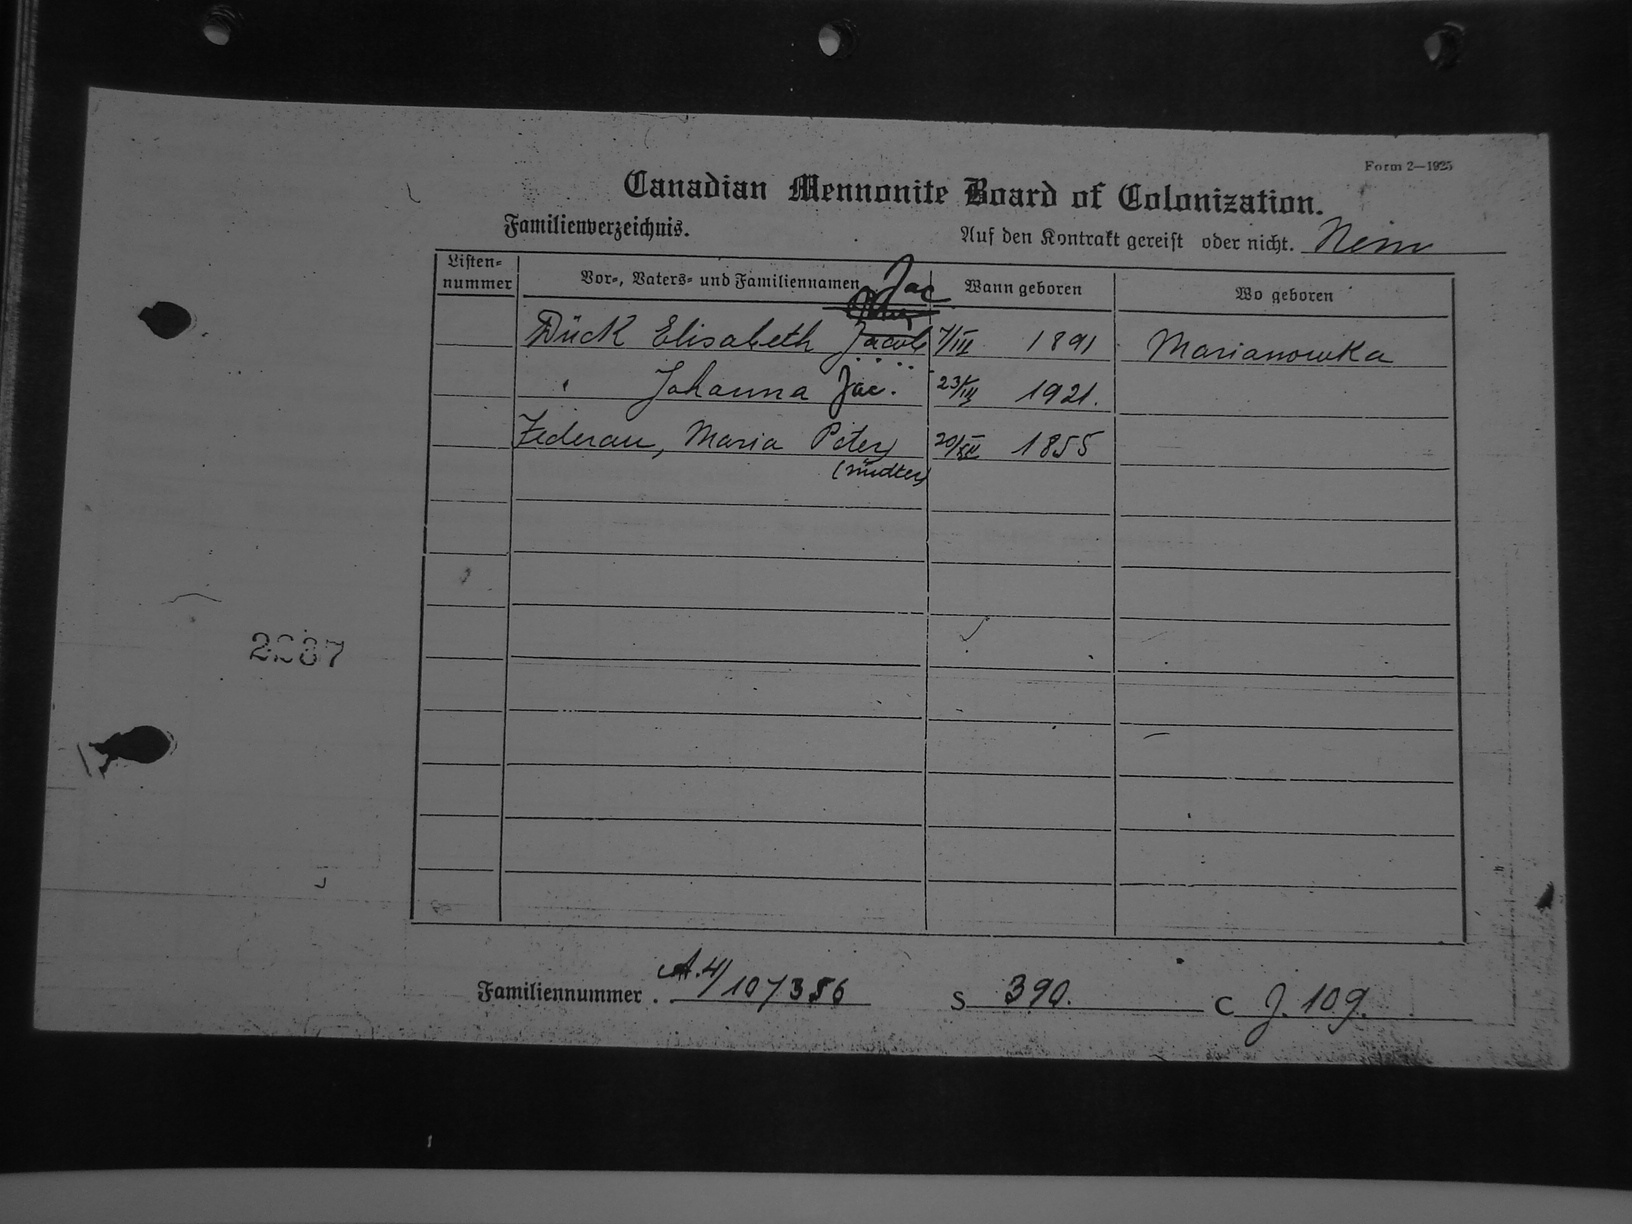 Form 2—1925
Canadian Mennonite Board of Colonization.
Familienverzeichnis.
Auf den Kontrakt gereist oder nicht. Nein
Listen-
nummer
Vor-, Vaters- und Familiennamen
Wann geboren
Wo geboren
Jac
Dück Elisabeth Jacob 7/III 1891 Marianowka
" Johanna Jac. 23/III 1921.
Federau, Maria Peter 1855
(Mutter)
Familiennummer. A.4/107356 S 390. C J. 109.